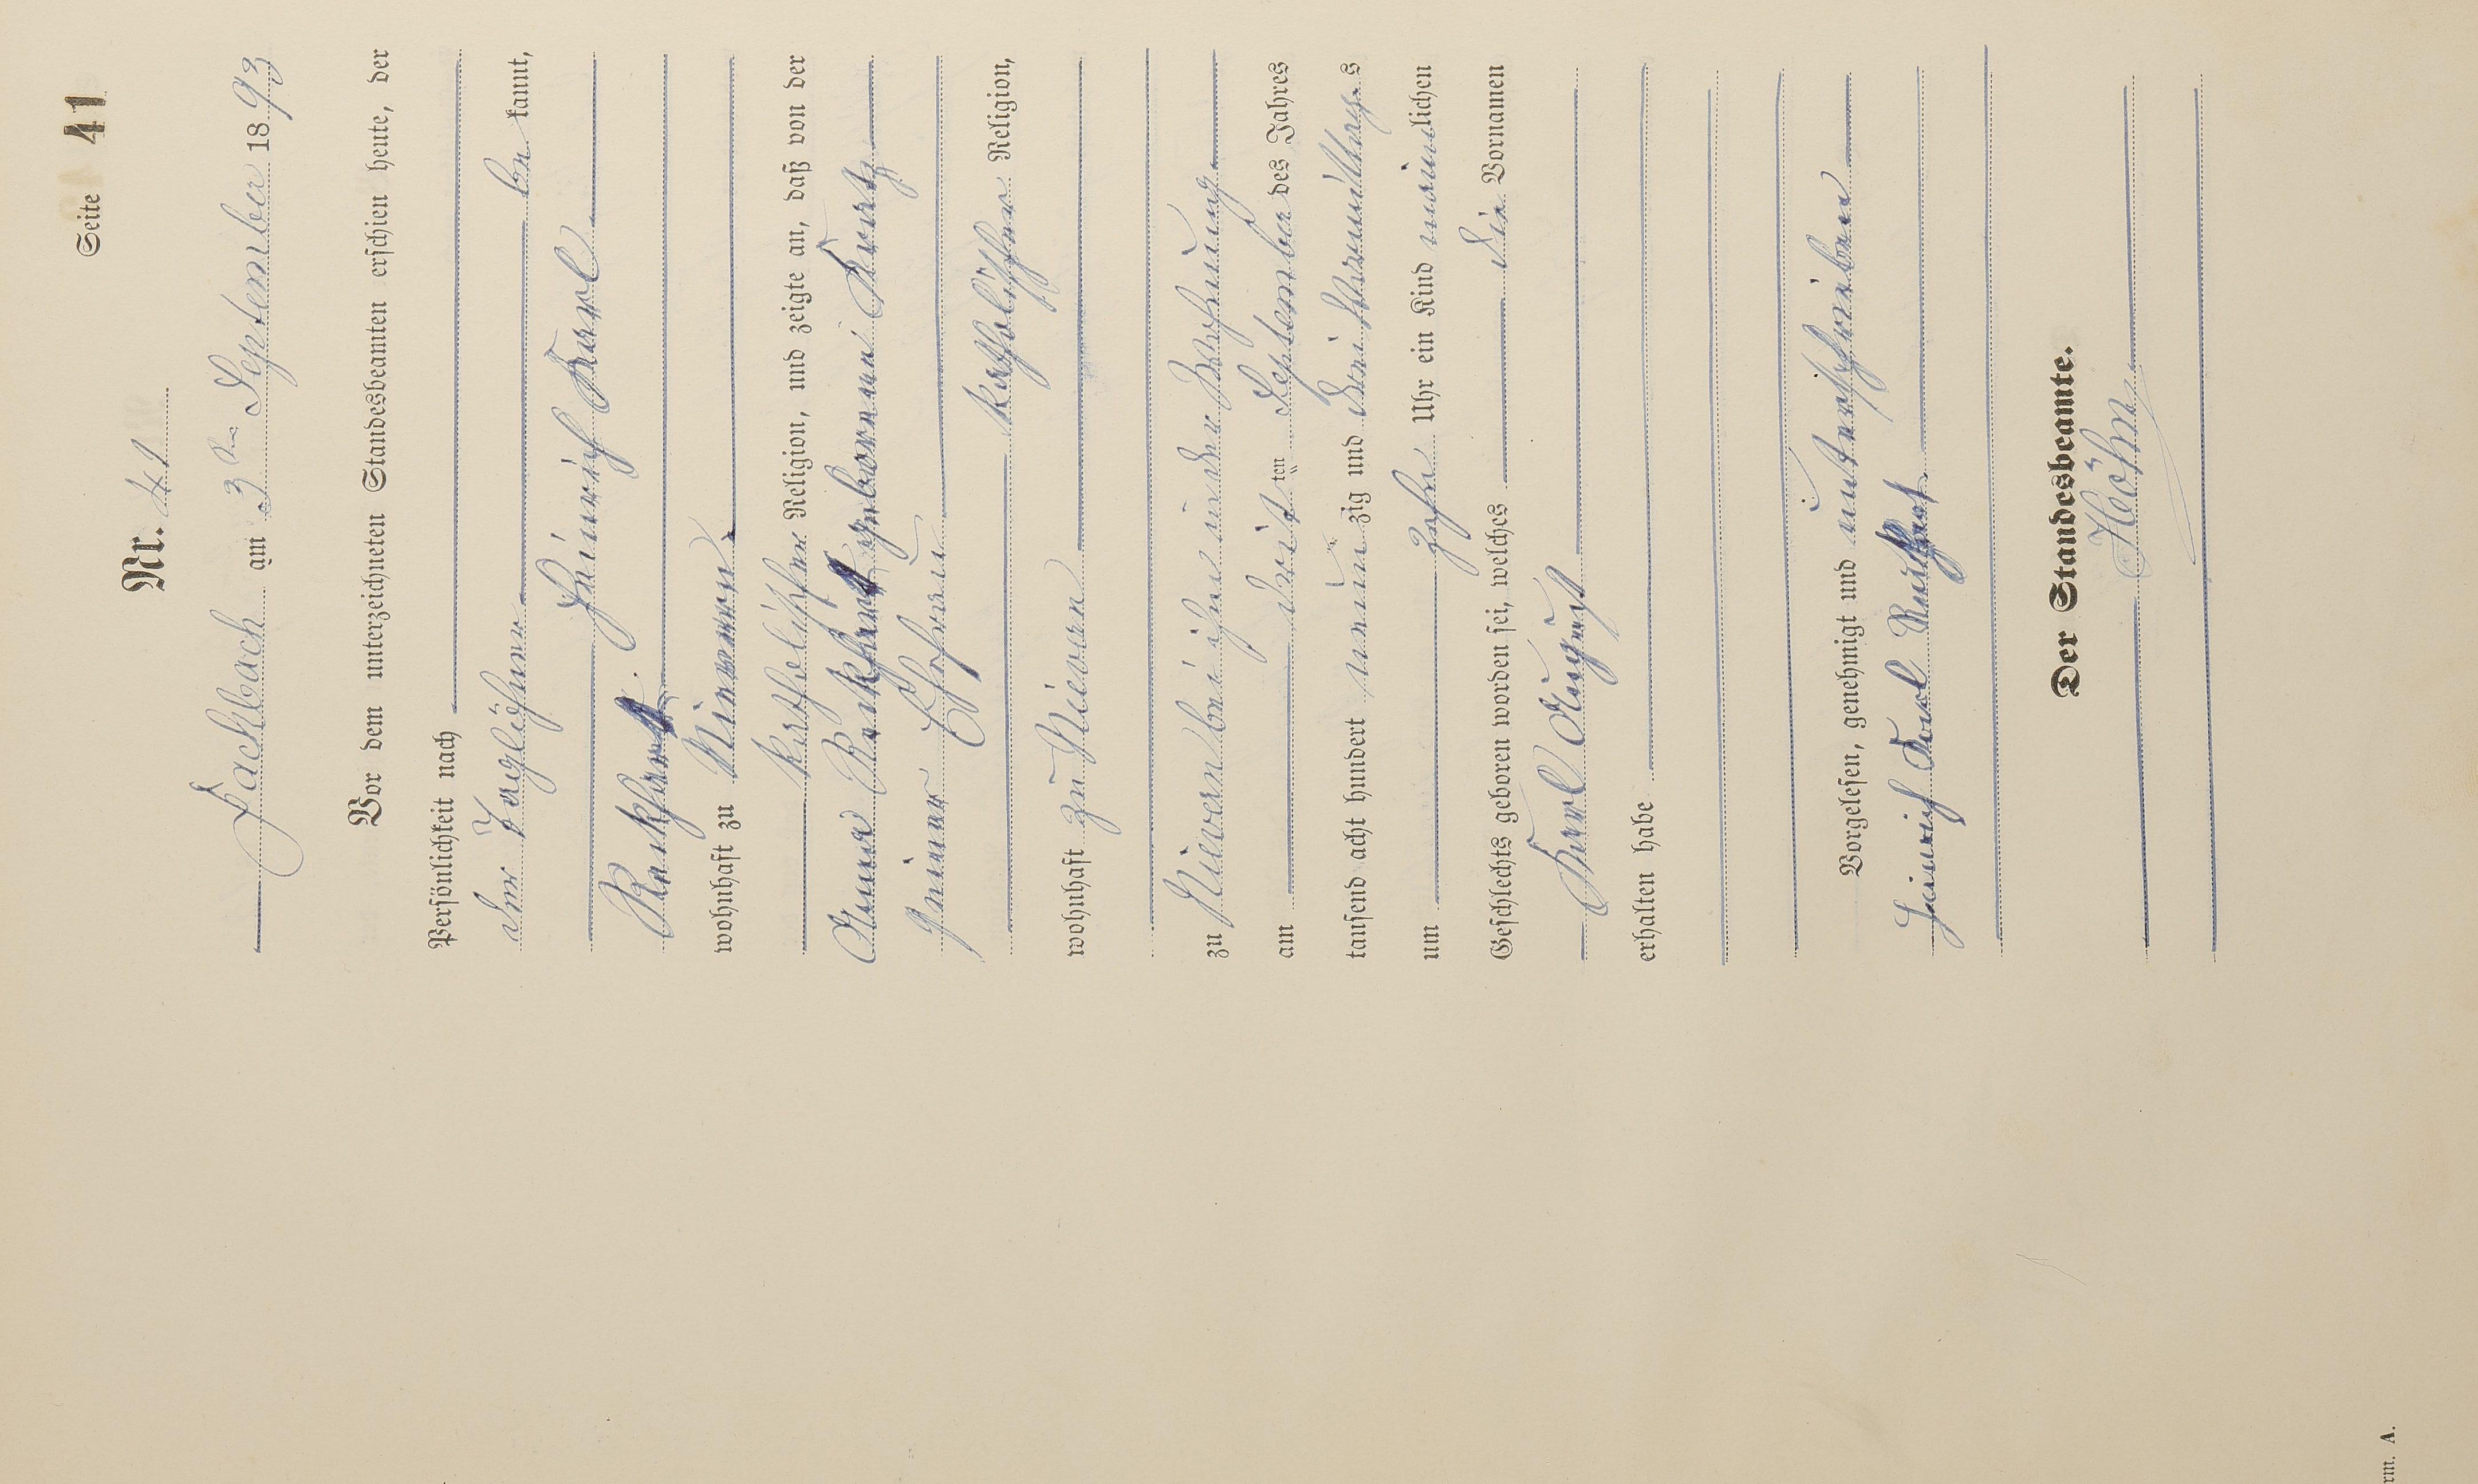 Seite 41
Nr. 41
Fachbach am 3ten September 1893
Vor dem unterzeichneten Standesbeamten erschien heute, der
Persönlichkeit nach
der Taglöhner be kannt,
Heinrich Karl
wohnhaft zu Nievern
katholischer Religion, und zeigte an, daß von der
Anna geborenen Kurtz
seiner Ehefrau
katholischer Religion,
wohnhaft zu Nievern
zu Nievern bei ihm in der Wohnung
am dritten September des Jahres
tausend acht hundert neunzig und drei Vormittags
um zehn Uhr ein Kind männlichen
Geschlechts geboren worden sei, welches die Vornamen
Karl August
erhalten habe
Vorgelesen, genehmigt und unterschrieben
Heinrich Karl
Der Standesbeamte.
Höhn
rm. A.